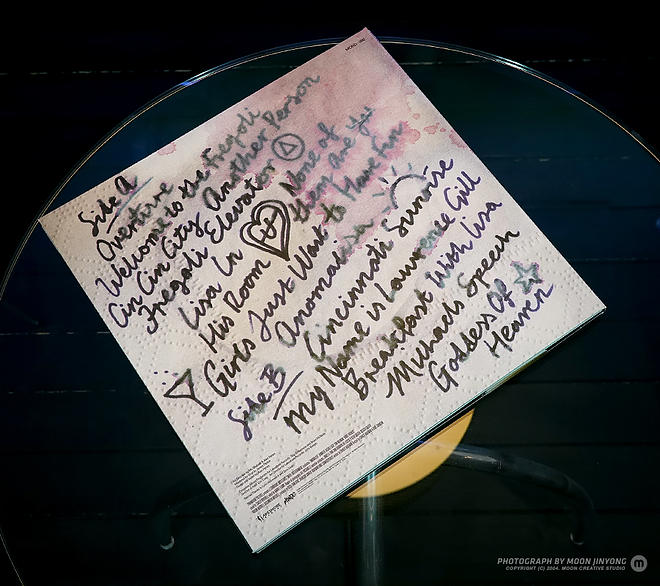 MOND-180
Side A
Overture
Welcome to the Fregoli
Cin Cin City Another Person
Fregoli Elevator None of
them are you
Lisa In
His Room
Girls Just Want to Have Fun
Anomalisa
Side B Cincinnati Sunrise
My Name is Lawrence Gill
Breakfast With Lisa
Michaels Speech
Goddess Of
Heaven
PHOTOGRAPH BY MOON JINYONG
COPYRIGHT (C) 2004. MOON CREATIVE STUDIO
m